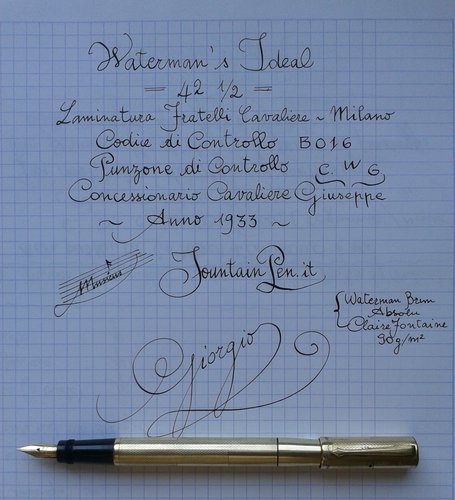 Waterman's Ideal
= 42 1/2 =
Laminatura Fratelli Cavaliere ~ Milano
Codice di Controllo B016
Punzone di Controllo C. W G
Concessionario Cavaliere Giuseppe
~ Anno 1933 ~
Musicus
FountainPen.it
Waterman Brun
Absolu
Claire Fontaine
90 g/m²
Giorgio